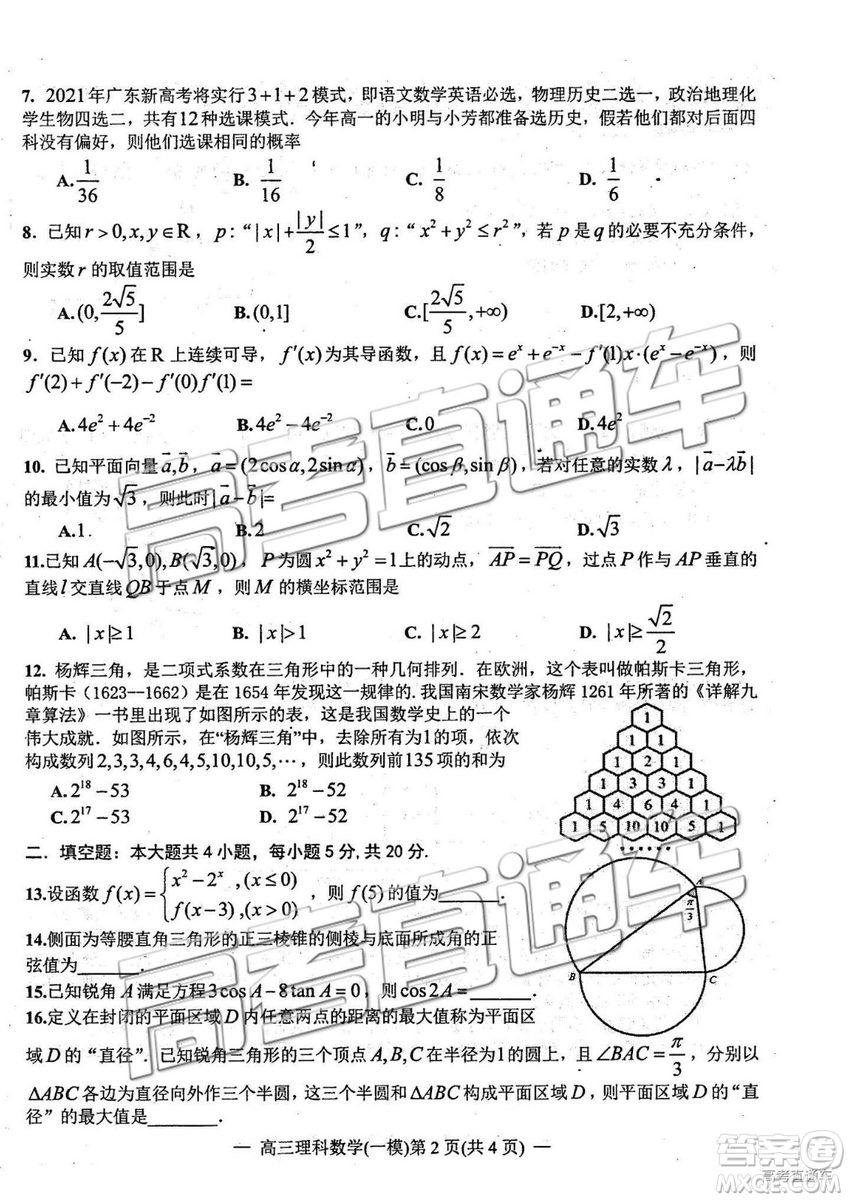 7. 2021年广东新高考将实行3+1+2模式，即语文数学英语必选，物理历史二选一，政治地理化
学生物四选二，共有12种选课模式．今年高一的小明与小芳都准备选历史，假若他们都对后面四
科没有偏好，则他们选课相同的概率
A. 1/36 B. 1/16 C. 1/8 D. 1/6
8．已知r>0,x,y∈R，p:“|x|+|y|/2≤1”，q:“x²+y²≤r²”，若p是q的必要不充分条件，
则实数r的取值范围是
A.(0,2√5/5] B.(0,1] C.[2√5/5,+∞) D.[2,+∞)
9．已知f(x)在R上连续可导，f′(x)为其导函数，且f(x)=eˣ+e⁻ˣ−f′(1)x·(eˣ−e⁻ˣ)，则
f′(2)+f′(−2)−f′(0)f′(1)=
A.4e²+4e⁻² B.4e²−4e⁻² C.0 D.4e²
10．已知平面向量a⃗,b⃗，a⃗=(2cosα,2sinα)，b⃗=(cosβ,sinβ)，若对任意的实数λ，|a⃗−λb⃗|
的最小值为√3，则此时|a⃗−b⃗|=
A.1 B.2 C.√2 D.√3
11.已知A(−√3,0),B(√3,0)，P为圆x²+y²=1上的动点，AP=PQ，过点P作与AP垂直的
直线l交直线QB于点M，则M的横坐标范围是
A. |x|≥1 B. |x|>1 C.|x|≥2 D. |x|≥√2/2
12．杨辉三角，是二项式系数在三角形中的一种几何排列．在欧洲，这个表叫做帕斯卡三角形，
帕斯卡（1623--1662）是在1654年发现这一规律的.我国南宋数学家杨辉1261年所著的《详解九
章算法》一书里出现了如图所示的表，这是我国数学史上的一个
伟大成就．如图所示，在“杨辉三角”中，去除所有为1的项，依次
构成数列2,3,3,4,6,4,5,10,10,5,⋯，则此数列前135项的和为
A.2¹⁸−53 B. 2¹⁸−52
C.2¹⁷−53 D. 2¹⁷−52
1
1 1
1 2 1
1 3 3 1
1 4 6 4 1
1 5 10 10 5 1
······
二．填空题：本大题共4小题，每小题5分,共20分.
13.设函数f(x)={x²−2ˣ ,(x≤0)
f(x−3) ,(x>0)，则f(5)的值为______.
14.侧面为等腰直角三角形的正三棱锥的侧棱与底面所成角的正
弦值为______.
A
π/3
B
C
15.已知锐角A满足方程3cosA−8tanA=0，则cos2A=______.
16.定义在封闭的平面区域D内任意两点的距离的最大值称为平面区
域D的“直径”．已知锐角三角形的三个顶点A,B,C在半径为1的圆上，且∠BAC=π/3，分别以
△ABC各边为直径向外作三个半圆，这三个半圆和△ABC构成平面区域D，则平面区域D的“直
径”的最大值是______.
— 高三理科数学(一模)第2页(共4页) —
高考直通车
高考直通车
答案圈
MXQE.COM
高考直通车